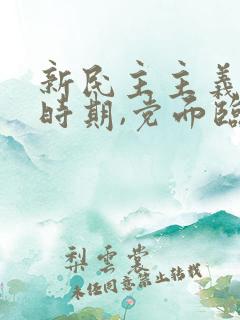 新民主主義
時期,党面臨
梨雲裳
未经同意禁止转载